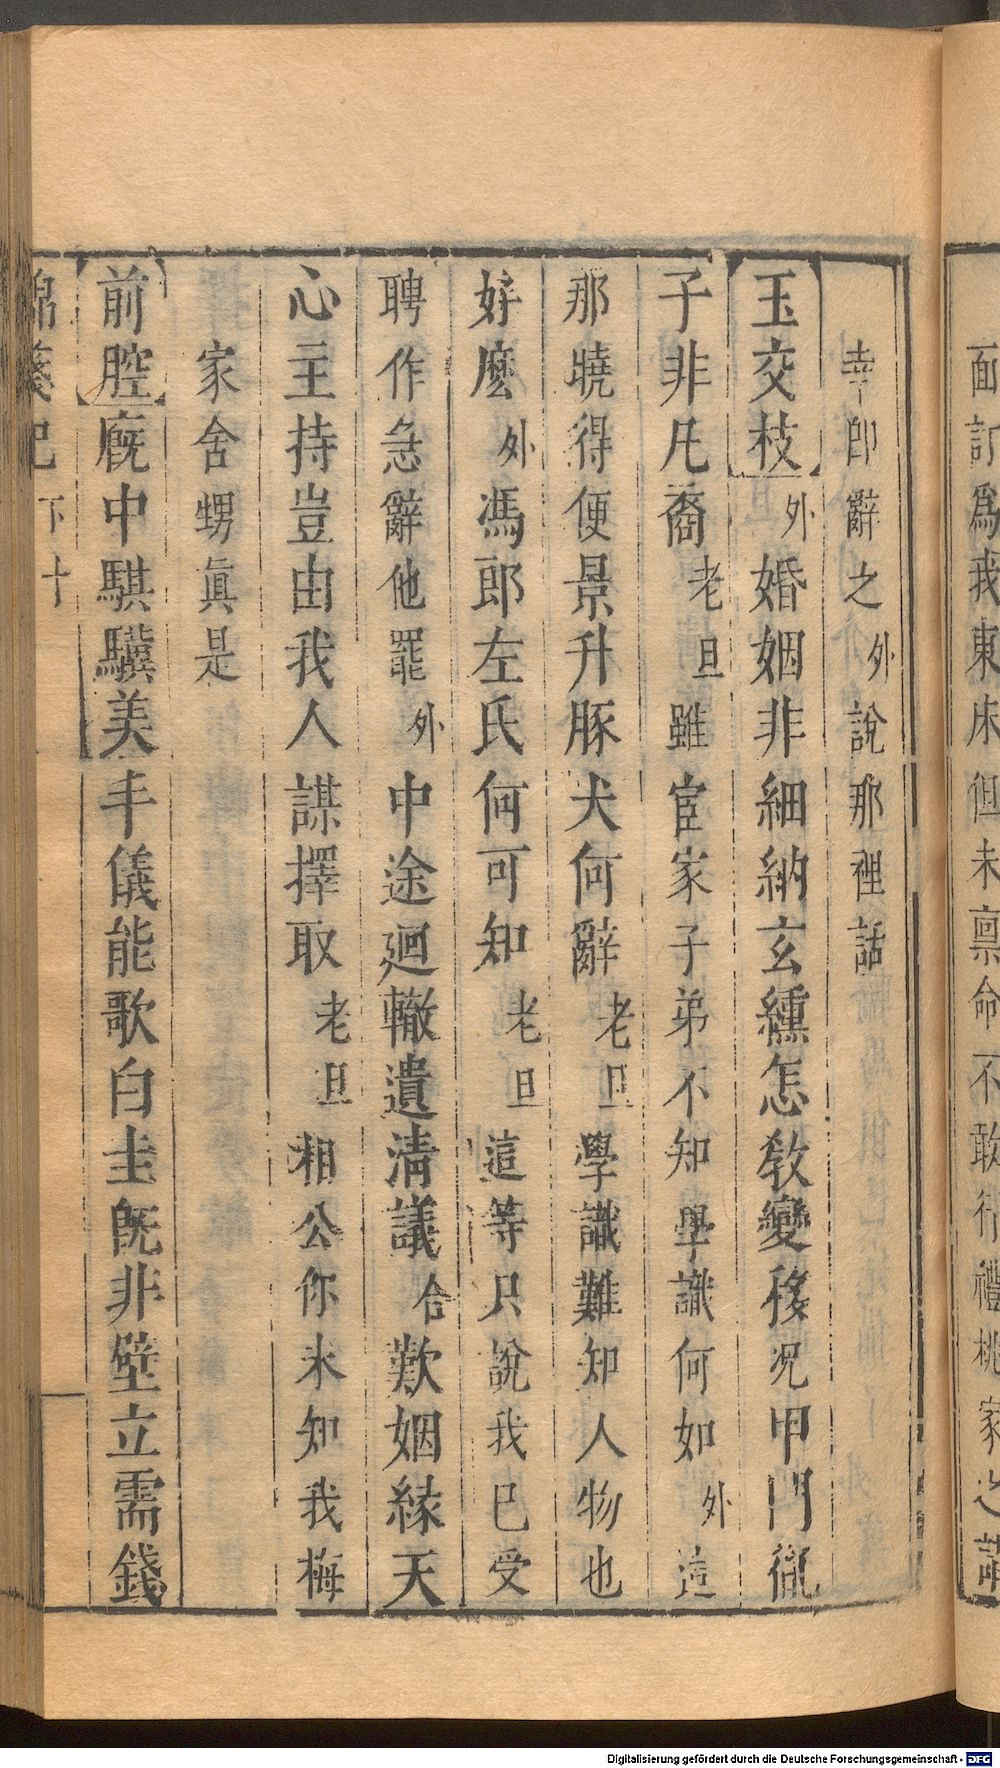 面訂爲我東床但未禀命不敢行禮桃家之請
幸卽辭之外說那裡話
玉交枝外婚姻非細納玄纁怎敎變移况甲門
子非凡裔老旦雖宦家子弟不知學識何如外這
那曉得便景升豚犬何辭老旦學識難知人物也
好麽外馮郎左氏何可知老旦這等只說我已受
聘作急辭他罷外中途廻轍遺淸議合歎姻緣天
心主持豈由我人謀擇取老旦相公你未知我梅
家舍甥眞是
前腔廐中騏驥美丰儀能歌白圭旣非壁立需錢
錦箋記下十
Digitalisierung gefördert durch die Deutsche Forschungsgemeinschaft - DFG